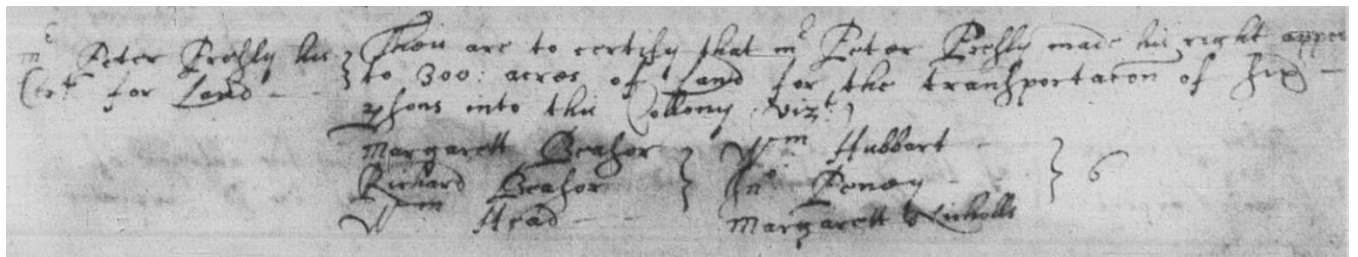 mr Peter Pressly his
Certt for Land
These are to certify that mr Peter Pressly made his right appe
to 300: acres of Land for the transportacon of six
psons into this Collony vizt.
Margarett Beasor
Richard Beasor
Wm Head
Wm Hubbart
Jno
Margarett Nicholls
6